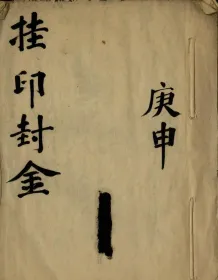 庚申
挂印封金